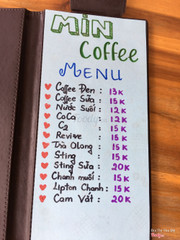 MiN
Coffee
MENU
Coffee Đen : 13K
Coffee Sữa : 15K
Nước Suối : 12K
CoCa : 12K
C2 : 15K
Revive : 15K
Trà Olong : 15K
Sting : 15K
Sting Sữa : 20K
Chanh muối : 15K
Lipton Chanh : 15K
Cam Vắt : 20K